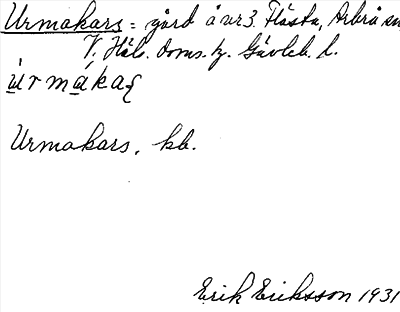 Urmakars = gård å nr 3 Flästa, Arbrå sn
V. Häls. doms. h. Gävleb. l.
ùrmákaʂ
Urmakars, kb.
Erik Eriksson 1931